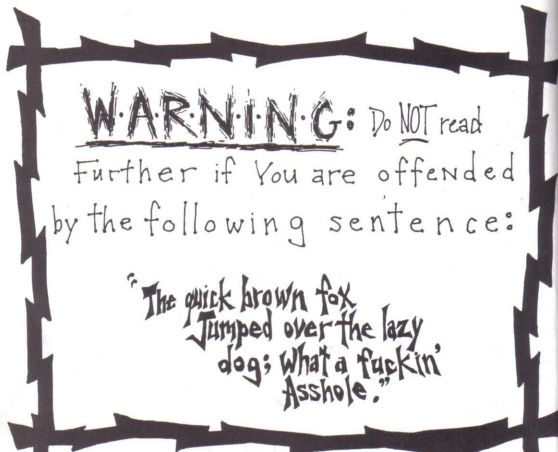 W·A·R·N·I·N·G: Do NOT read
Further if You are offeNded
by the following sentence:
"The quick brown fox
Jumped over the lazy
dog; What a fuckin'
Asshole."